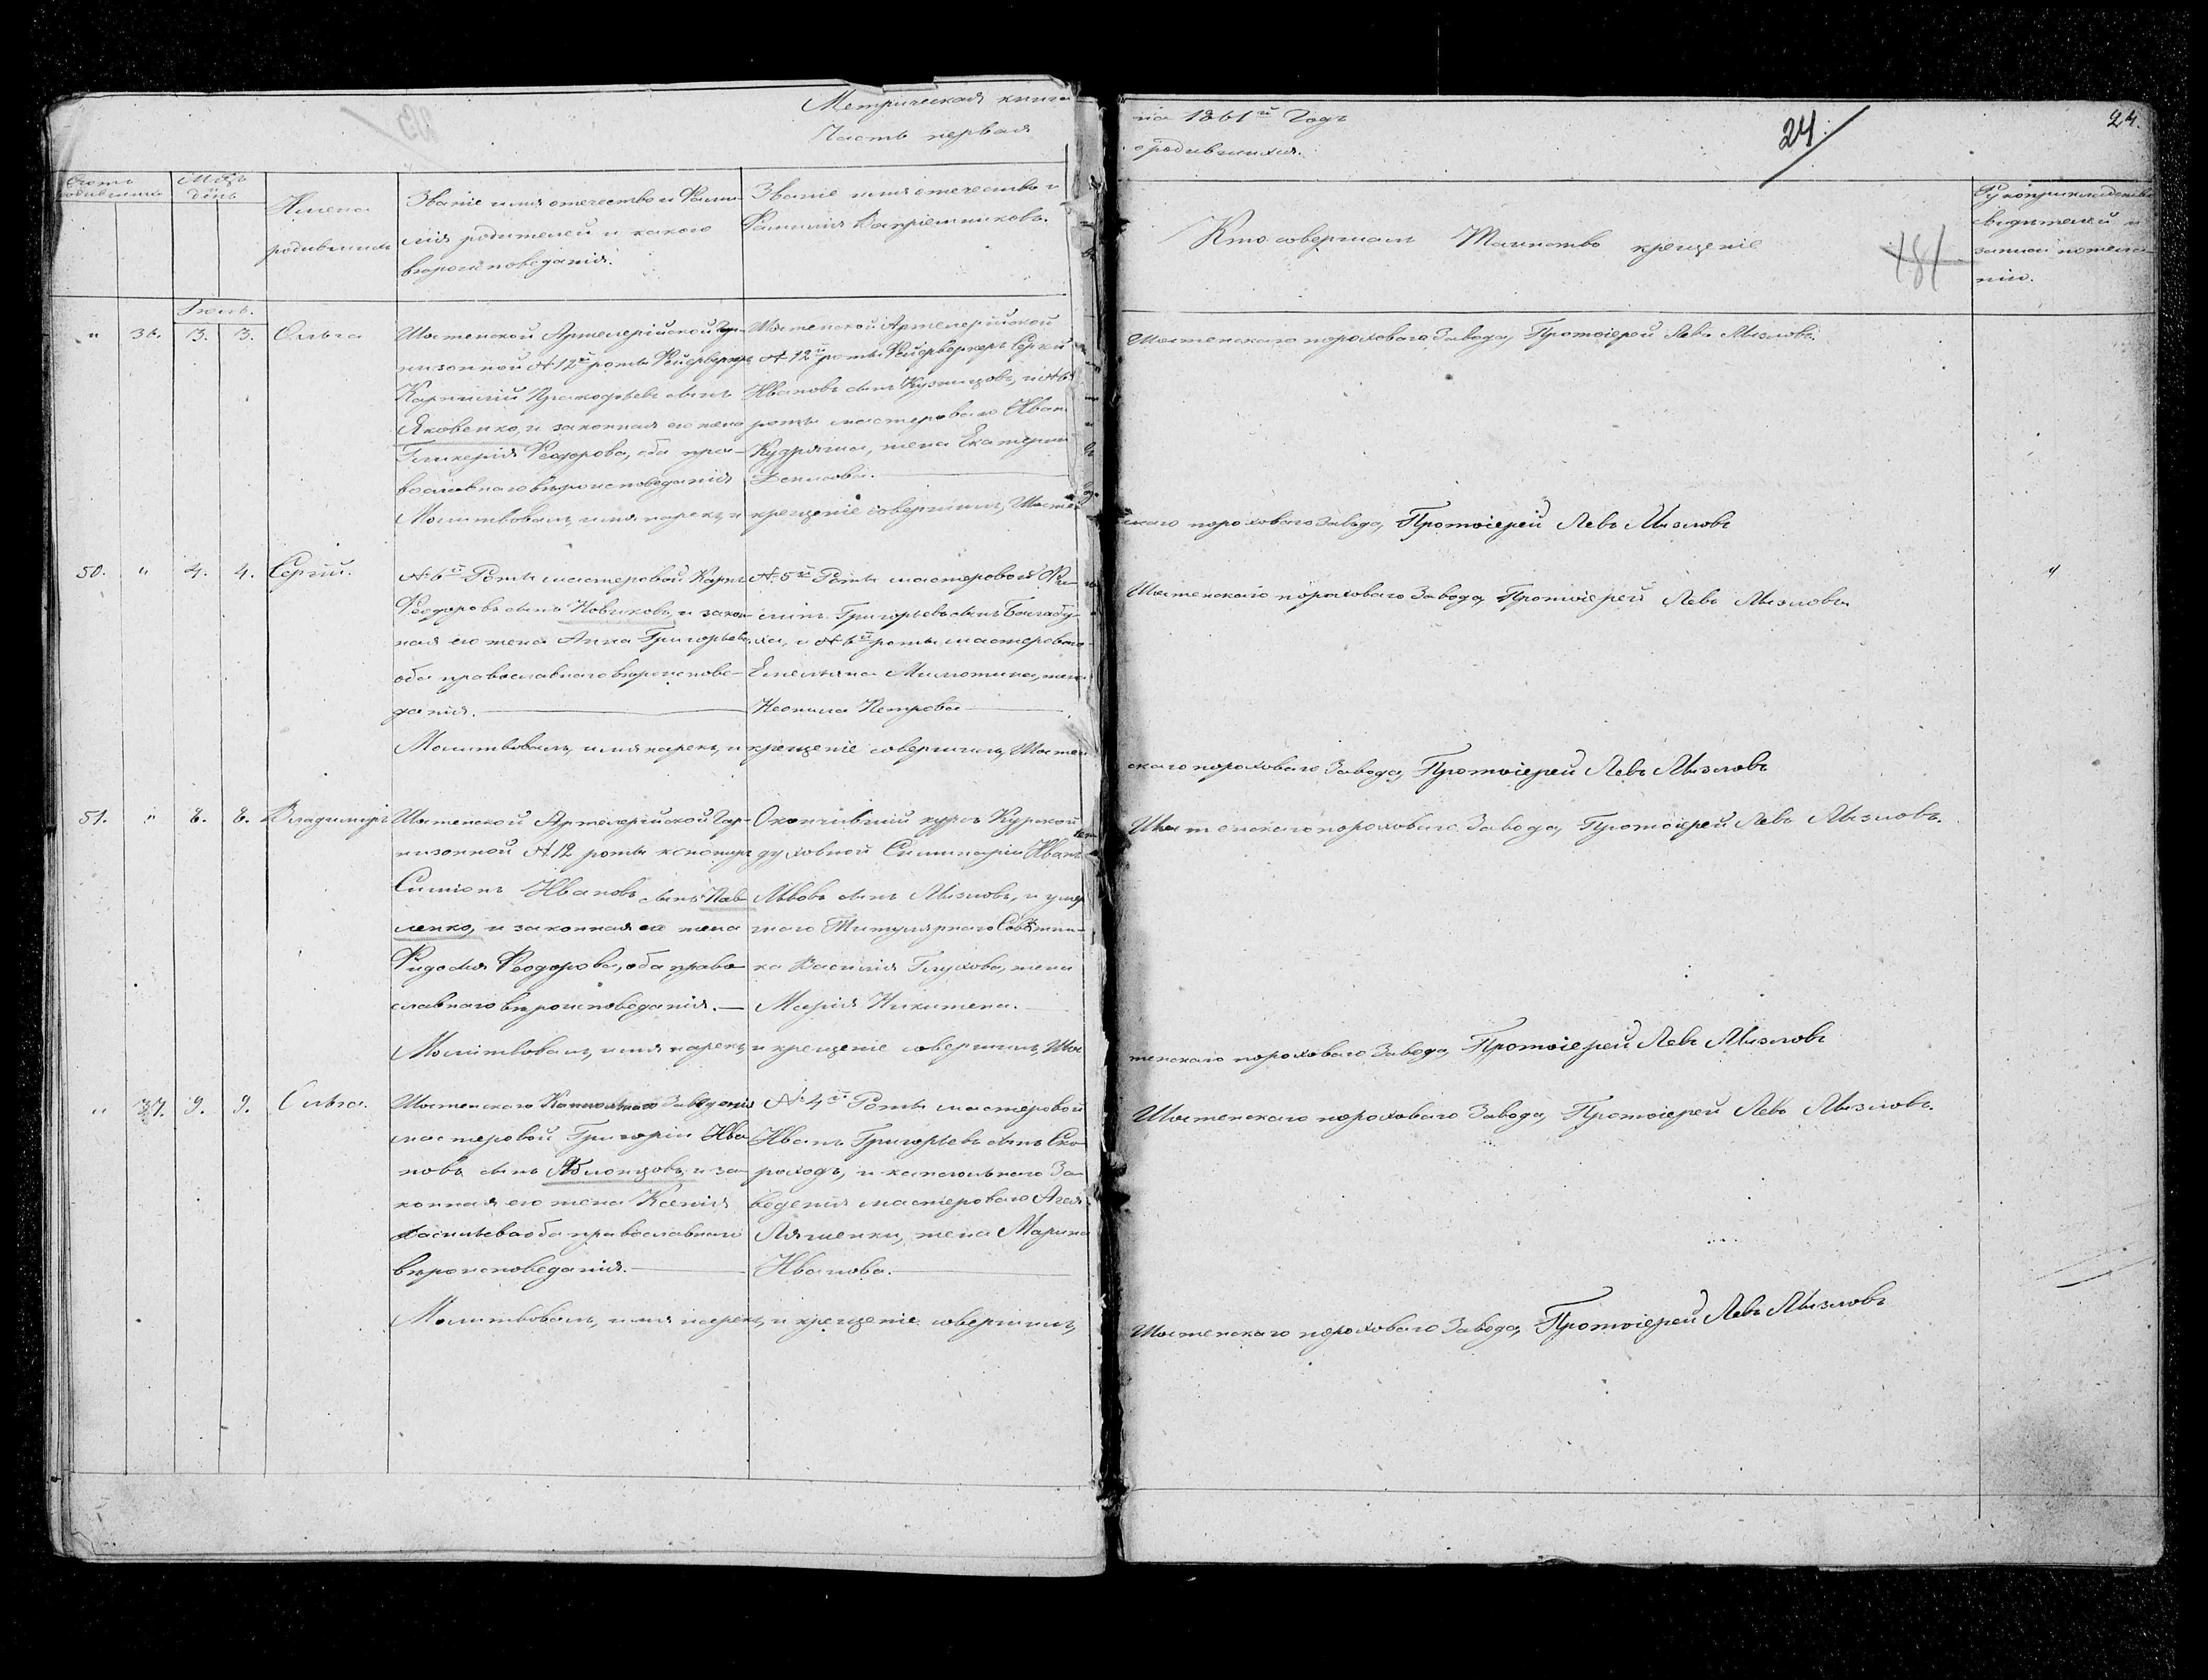 Метрическая книга на 1861й Годъ
Часть первая о родившихся.
24
24.
181
Счетъ родившихся
Мѣсяцъ и день
Имена родившихся
Званіе имя отечество и Фами-
лія родителей и какого
вѣроисповѣданія.
Званіе имя отечество и
Фамилія Воспріемниковъ.
Кто совершалъ Таинство крещеніе
Рукоприкладство
свидѣтелей
записи по жела-
нію.
Іюль.
" 36. 3. 3. Ольга
Шостенской Артилерійской Гар-
низонной №12й роты Фейерверкеръ
Прокофьевъ сынъ
Яковенко, и законная его жена
Гликерія Феодорова, оба пра-
вославнаго вѣроисповеданія
Шостенской Артилерійской
№12й роты Фейерверкеръ Сергей
Ивановъ сынъ Кузнецовъ, и №6й
роты мастероваго Ивана
Кудряша, жена Екатерина
Денисова.
Шостенскаго пороховаго Завода, Протоіерей Левъ Мизловъ.
Молитвовалъ, имя нарекъ, и крещеніе совершилъ, Шостен-
скаго пороховаго Завода, Протоіерей Левъ Мизловъ
50. " 4. 4. Сергій.
№6й Роты мастеровой Карпъ
Феодоровъ сынъ Новиковъ, и закон-
ная его жена Анна Григорьева,
оба православнаго вѣроисповѣ-
данія.
№5й Роты мастеровой Фи-
липъ Григорьевъ сынъ
ха, и №6й роты мастероваго
Емельяна Милютина, жена
Неонила Петрова
Шостенскаго пороховаго Завода, Протоіерей Левъ Мизловъ.
Молитвовалъ, имя нарекъ, и крещеніе совершилъ, Шостен-
скаго пороховаго Завода, Протоіерей Левъ Мизловъ
51. " 8. 8. Владимиръ
Шостенской Артилерійской Гар-
низонной №12 роты канониръ
Симіонъ Ивановъ сынъ Пав-
ленко, и законная его жена
Феодорова, оба право-
славнаго вѣроисповѣданія.
Окончившій курсъ Курской
духовной Симинаріи Иванъ
Львовъ сынъ Мизловъ, и умер-
шаго Титулярнаго Совѣтни-
ка Василія Глухова, жена
Марія Никитена.
Шостенскаго пороховаго Завода, Протоіерей Левъ Мизловъ.
Молитвовалъ, имя нарекъ, и крещеніе совершилъ, Шос-
тенскаго пороховаго Завода, Протоіерей Левъ Мизловъ
" 37. 9. 9. Ольга.
Шостенскаго Капсюльнаго Заведенія
мастеровой Григорій Ива-
новъ сынъ Яблонцовъ, и за-
конная его жена Ксенія
Васильева оба православнаго
вѣроисповеданія.
№4й Роты мастеровой
Иванъ Григорьевъ сынъ Ско-
роходъ, и капсюльнаго За-
веденія мастероваго
Ляшенки, жена Марина
Иванова.
Шостенскаго пороховаго Завода, Протоіерей Левъ Мизловъ.
Молитвовалъ, имя нарекъ, и крещеніе совершилъ,
Шостенскаго пороховаго Завода, Протоіерей Левъ Мизловъ